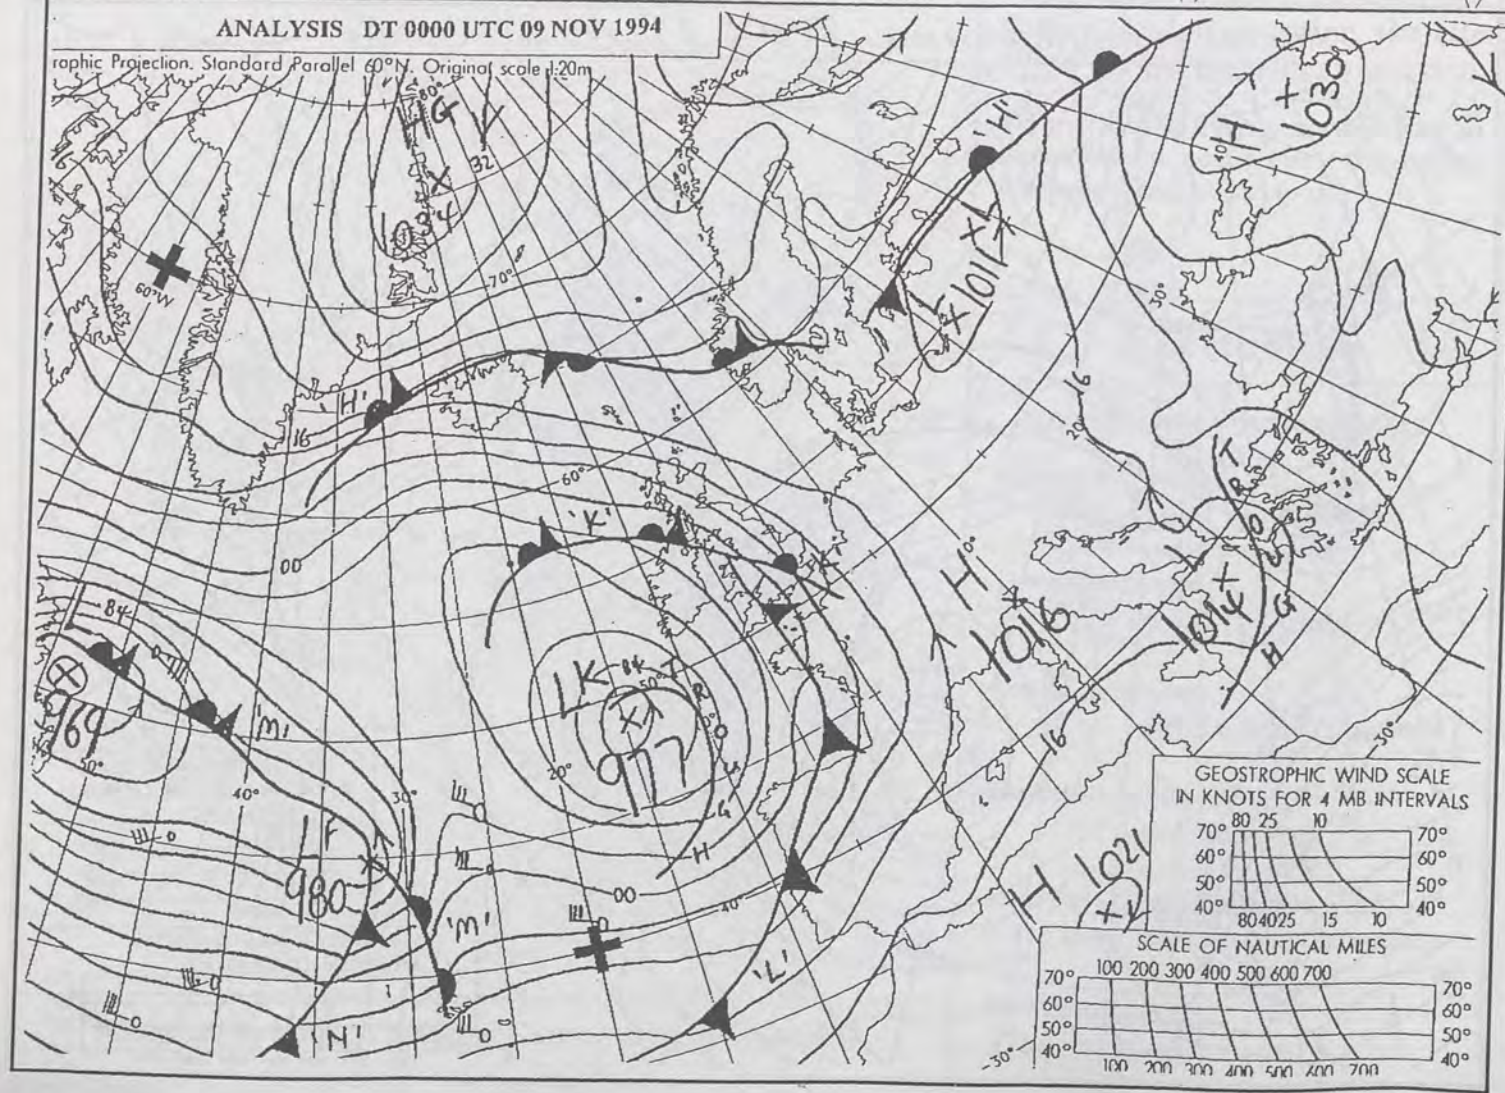 ANALYSIS DT 0000 UTC 09 NOV 1994
raphic Projection. Standard Parallel 60°N. Original scale 1:20m
80°
H G
32
1034
'H'
H
1030
40°
L
1017
60°W
70°
30°
'H'
16
16
20°
60°
'K'
00
T
R
O
U
G
H
H
10°
1016
L
1014
L
84
969
50°
'M'
40°
30°
L K
84
50°
T
R
O
U
G
H
977
20°
K
16
30°
L F
980
'M'
00
40°
H 1021
'L'
'N'
30°
GEOSTROPHIC WIND SCALE
IN KNOTS FOR 4 MB INTERVALS
80 25 10
70° 70°
60° 60°
50° 50°
40° 40°
80 40 25 15 10
SCALE OF NAUTICAL MILES
100 200 300 400 500 600 700
70° 70°
60° 60°
50° 50°
40° 40°
100 200 300 400 500 600 700